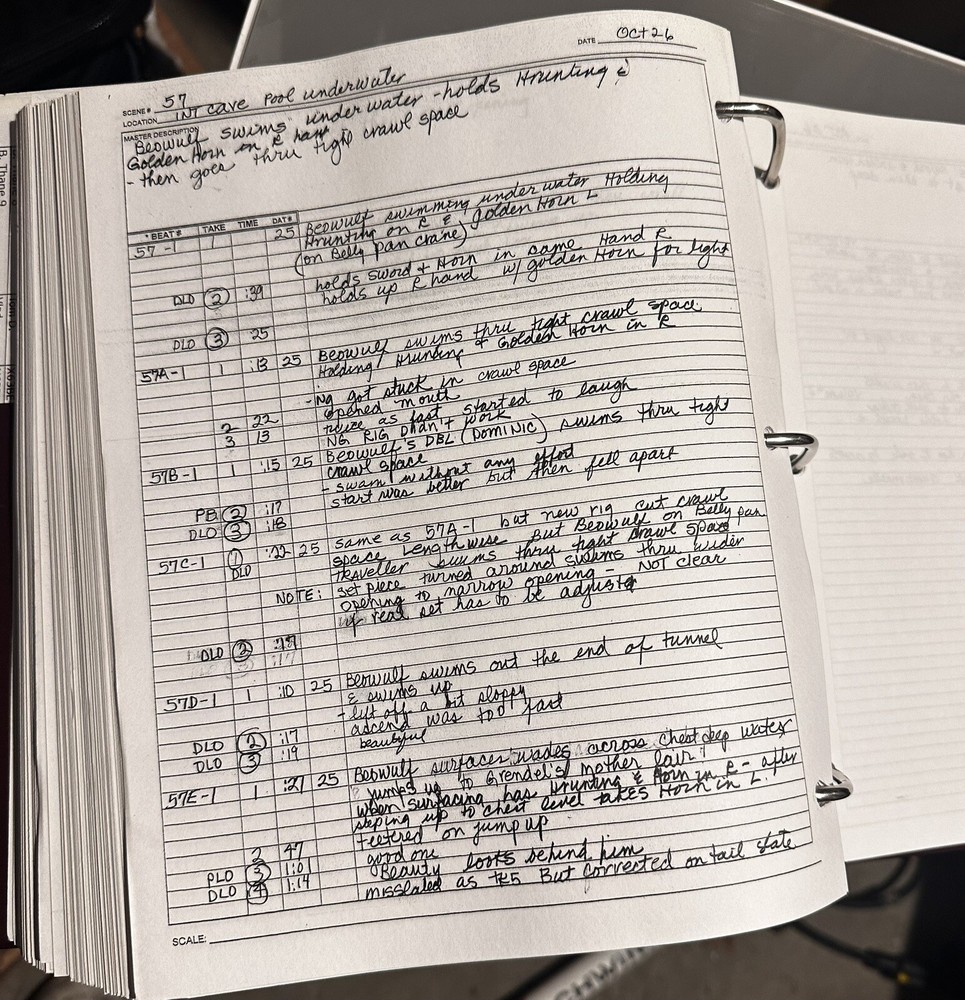 DATE Oct 26
SCENE # 57
LOCATION INT cave Pool underwater
MASTER DESCRIPTION
Beowulf swims underwater - holds Hrunting &
Golden Horn in R hand
- then goes thru tight crawl space
*BEAT# TAKE TIME DAT#
57-1 1 25 Beowulf swimming underwater Holding
Hrunting on R & golden Horn L
(on Belly pan crane)
holds sword + Horn in same Hand R
DLO 2 :39 holds up R hand w/ golden Horn for light
DLO 3 25
57A-1 1 :13 25 Beowulf swims thru tight crawl space
Holding Hrunting & Golden Horn in R
- NG got stuck in crawl space
opened mouth
2 22 twice as fast started to laugh
3 13 NG RIG Didn't work
57B-1 1 :15 25 Beowulf's DBL (DOMINIC) swims thru tight
crawl space
- swam without any effort
PB 2 :17 start was better but then fell apart
DLO 3 :18
57C-1 1 :22 25 same as 57A-1 but new rig cut crawl
DLO space lengthwise But Beowulf on Belly pan
traveller swims thru tight crawl space
NOTE: set piece turned around swims thru wider
opening to narrow opening - NOT clear
if real set has to be adjusted
DLO 2
57D-1 1 :10 25 Beowulf swims out the end of tunnel
& swims up
- lift off a bit sloppy
ascend was too fast
DLO 2 :17 beautiful
DLO 3 :19
57E-1 1 :27 25 Beowulf surfaces wades across chest deep water
jumps up to Grendel's mother lair
when surfacing has Hrunting & Horn in R - after
steping up to chest level takes Horn in L.
teetered on jump up
2 47 good one
PLO 3 1:01 Beauty looks behind him
DLO 4 1:14 misslated as TK5 But corrected on tail slate
SCALE:
B. Thane 9